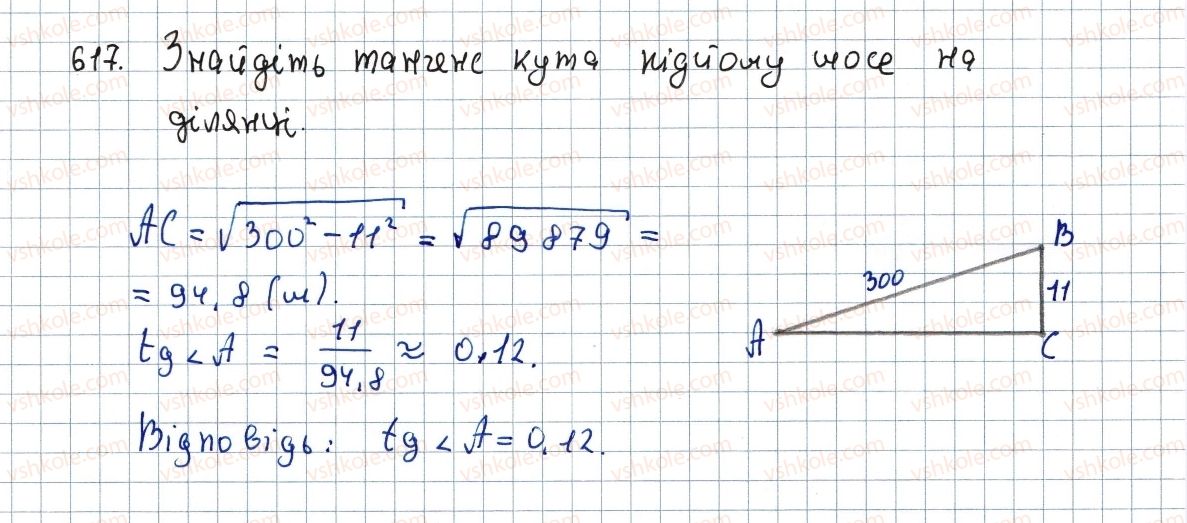 617. Знайдіть тангенс кута підйому шосе на
ділянці.
AC = √300² − 11² = √89879 =
= 94,8 (м).
tg < A = 11/94,8 ≈ 0,12.
Відповідь: tg < A = 0,12.
A
300
B
11
C
vshkole.com